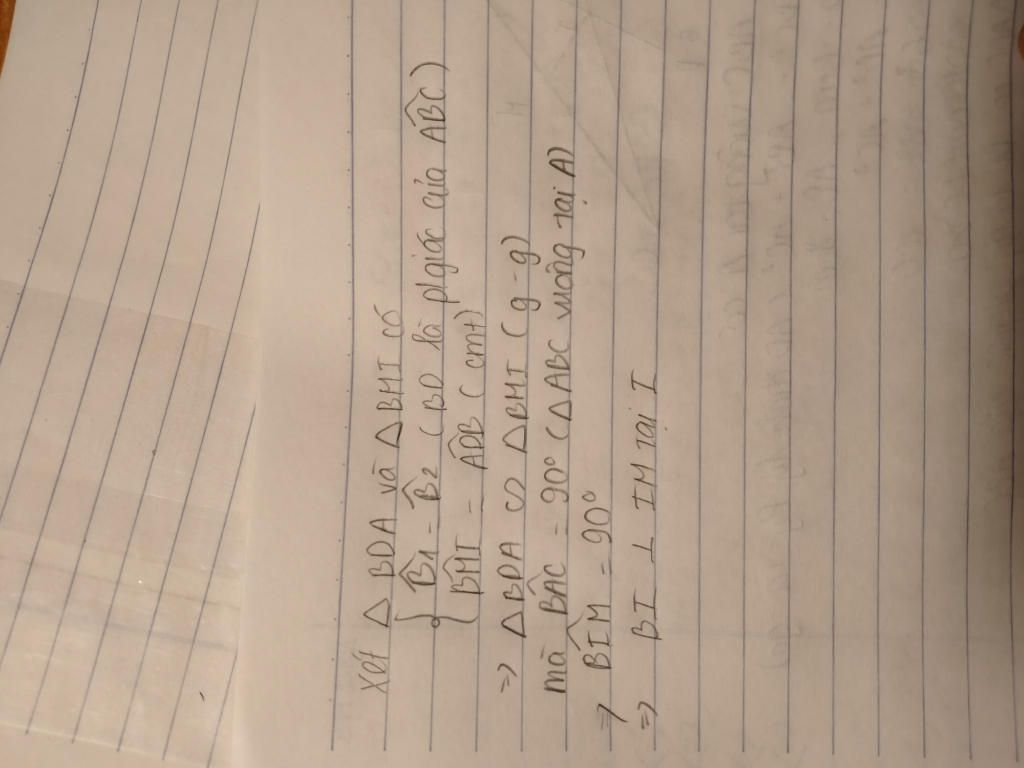 Xét △ BDA và △ BMI có
{ B̂1 = B̂2 ( BD là p/giác của AB̂C )
BM̂I = AD̂B ( cmt)
=> △BDA ∽ △BMI ( g - g)
mà BÂC = 90° ( △ABC vuông tại A)
=> BÎM = 90°
=> BI ⊥ IM tại I